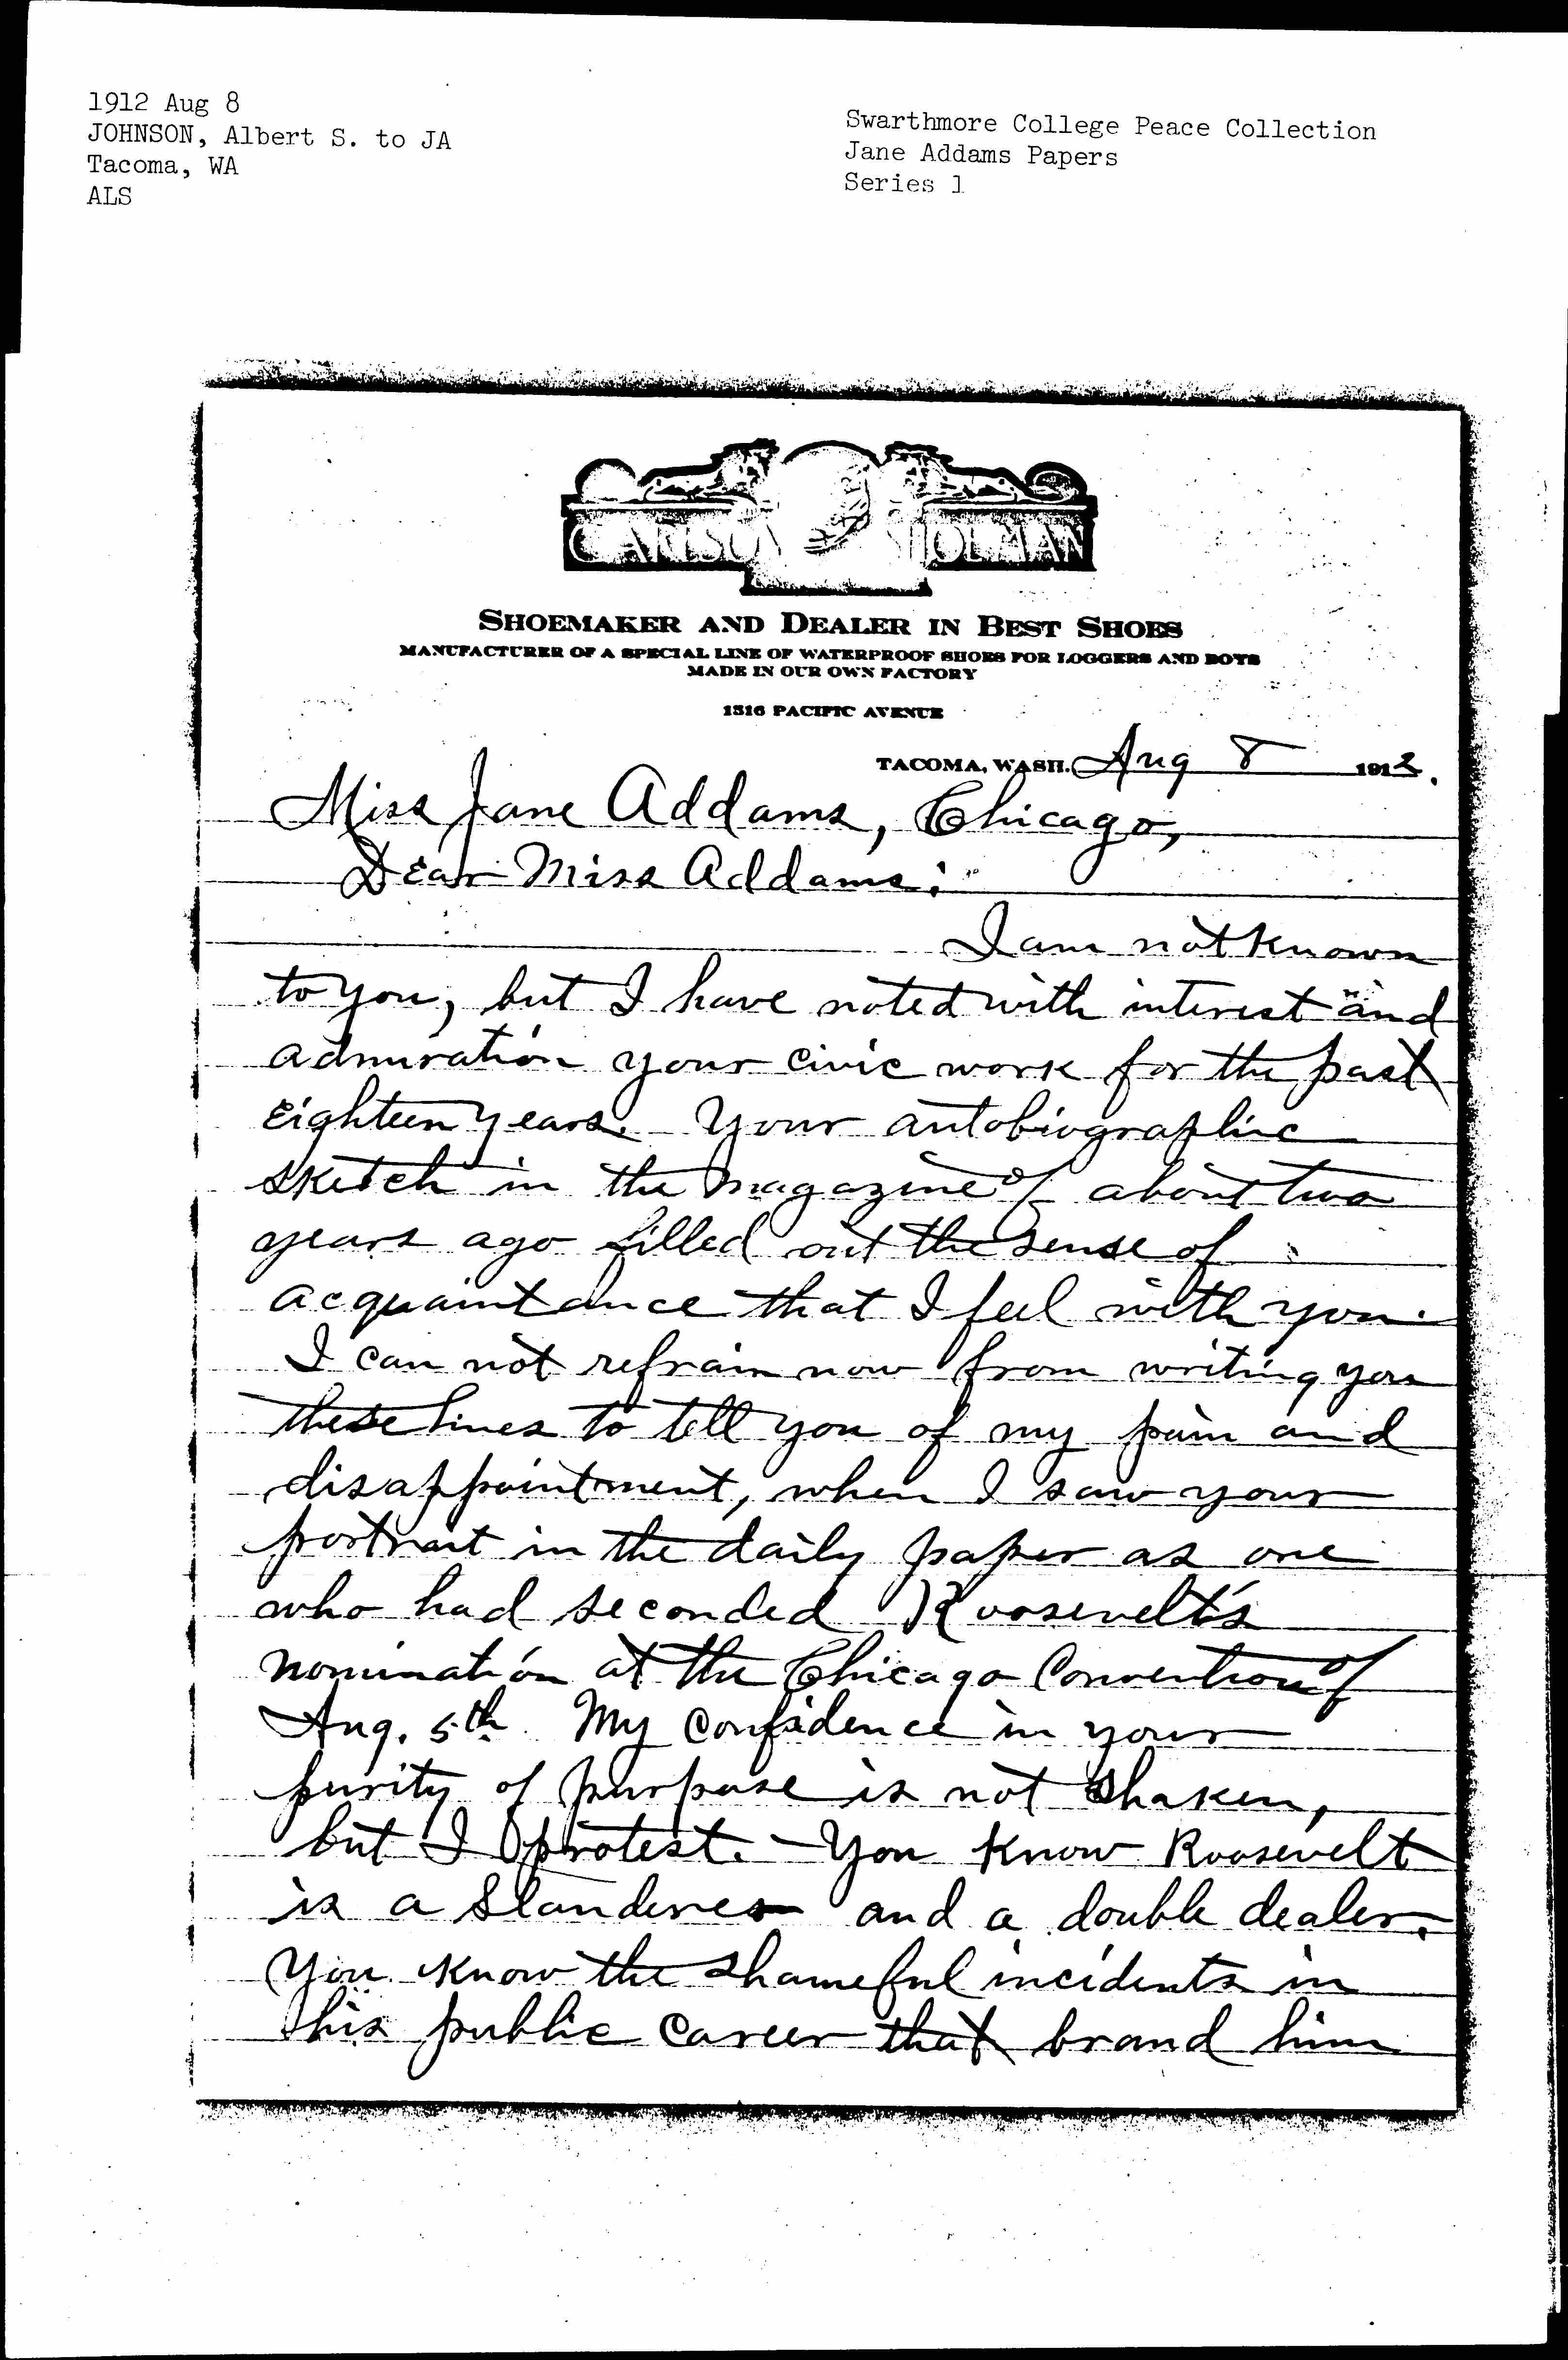 1912 Aug 8
JOHNSON, Albert S. to JA
Tacoma, WA
ALS
Swarthmore College Peace Collection
Jane Addams Papers
Series 1
SHOEMAKER AND DEALER IN BEST SHOES
MANUFACTURER OF A SPECIAL LINE OF WATERPROOF SHOES FOR LOGGERS AND BOYS
MADE IN OUR OWN FACTORY
1316 PACIFIC AVENUE
TACOMA, WASH. Aug 8 1912.
Miss Jane Addams, Chicago,
Dear Miss Addams:
I am not known
to you, but I have noted with interest and
admiration your civic work for the past
eighteen years. Your autobiographic
sketch in the magazine of about two
years ago filled out the sense of
acquaintance that I feel with you.
I can not refrain now from writing you
these lines to tell you of my pain and
disappointment, when I saw your
portrait in the daily paper as one
who had seconded Roosevelt's
nomination at the Chicago Convention of
Aug. 5th. My confidence in your
purity of purpose is not shaken,
but I protest. You know Roosevelt
is a slanderer and a double dealer.
You know the shameful incidents in
his public career that brand him